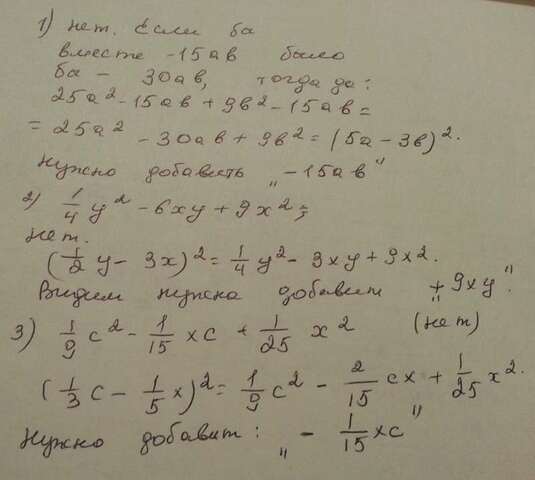 1) нет. Если ба
вместе -15ав было
ба - 30ав, тогда да:
25а² - 15ав + 9в² - 15ав =
= 25а² - 30ав + 9в² = (5а - 3в)².
Нужно добавить „-15ав"
2) 1/4 y² - 6xy + 9x² =;
нет.
(1/2 y - 3x)² = 1/4 y² - 3xy + 9x².
Видим нужна добавит „+9xy".
3) 1/9 c² - 1/15 xc + 1/25 x² (нет)
(1/3 c - 1/5 x)² = 1/9 c² - 2/15 cx + 1/25 x².
Нужно добавит: „- 1/15 xc"